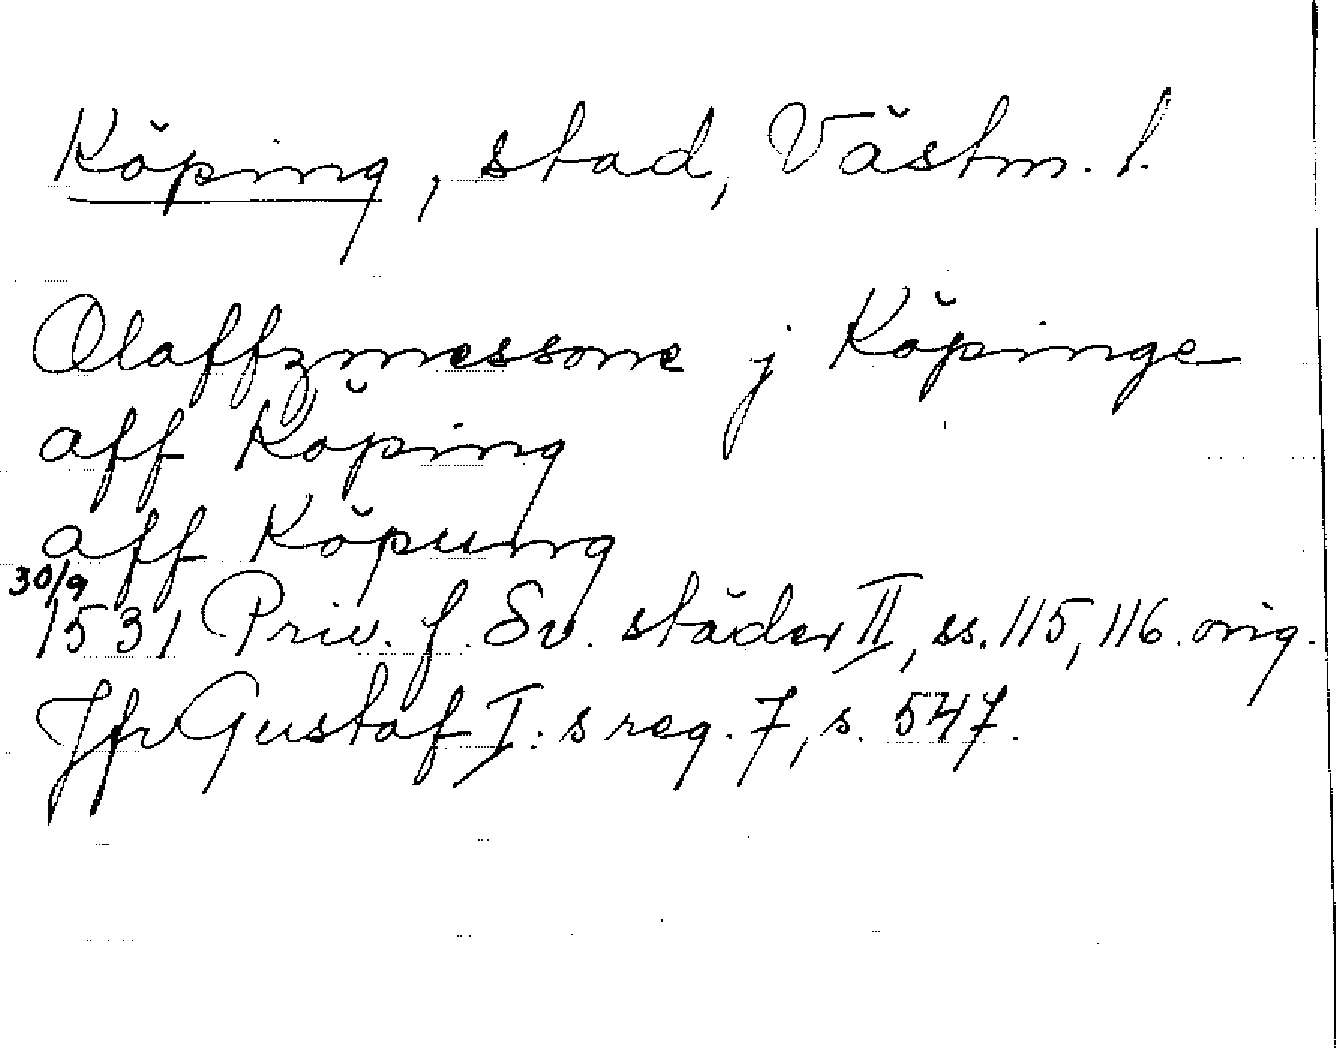 Köping, stad, Västm. l.
Olaffzmessone j Köpinge
aff Köping
aff Köpung
30/9
1531 Priv. f. Sv. städer II, ss. 115, 116. orig.
Jfr Gustaf I: s reg. 7, s. 547.